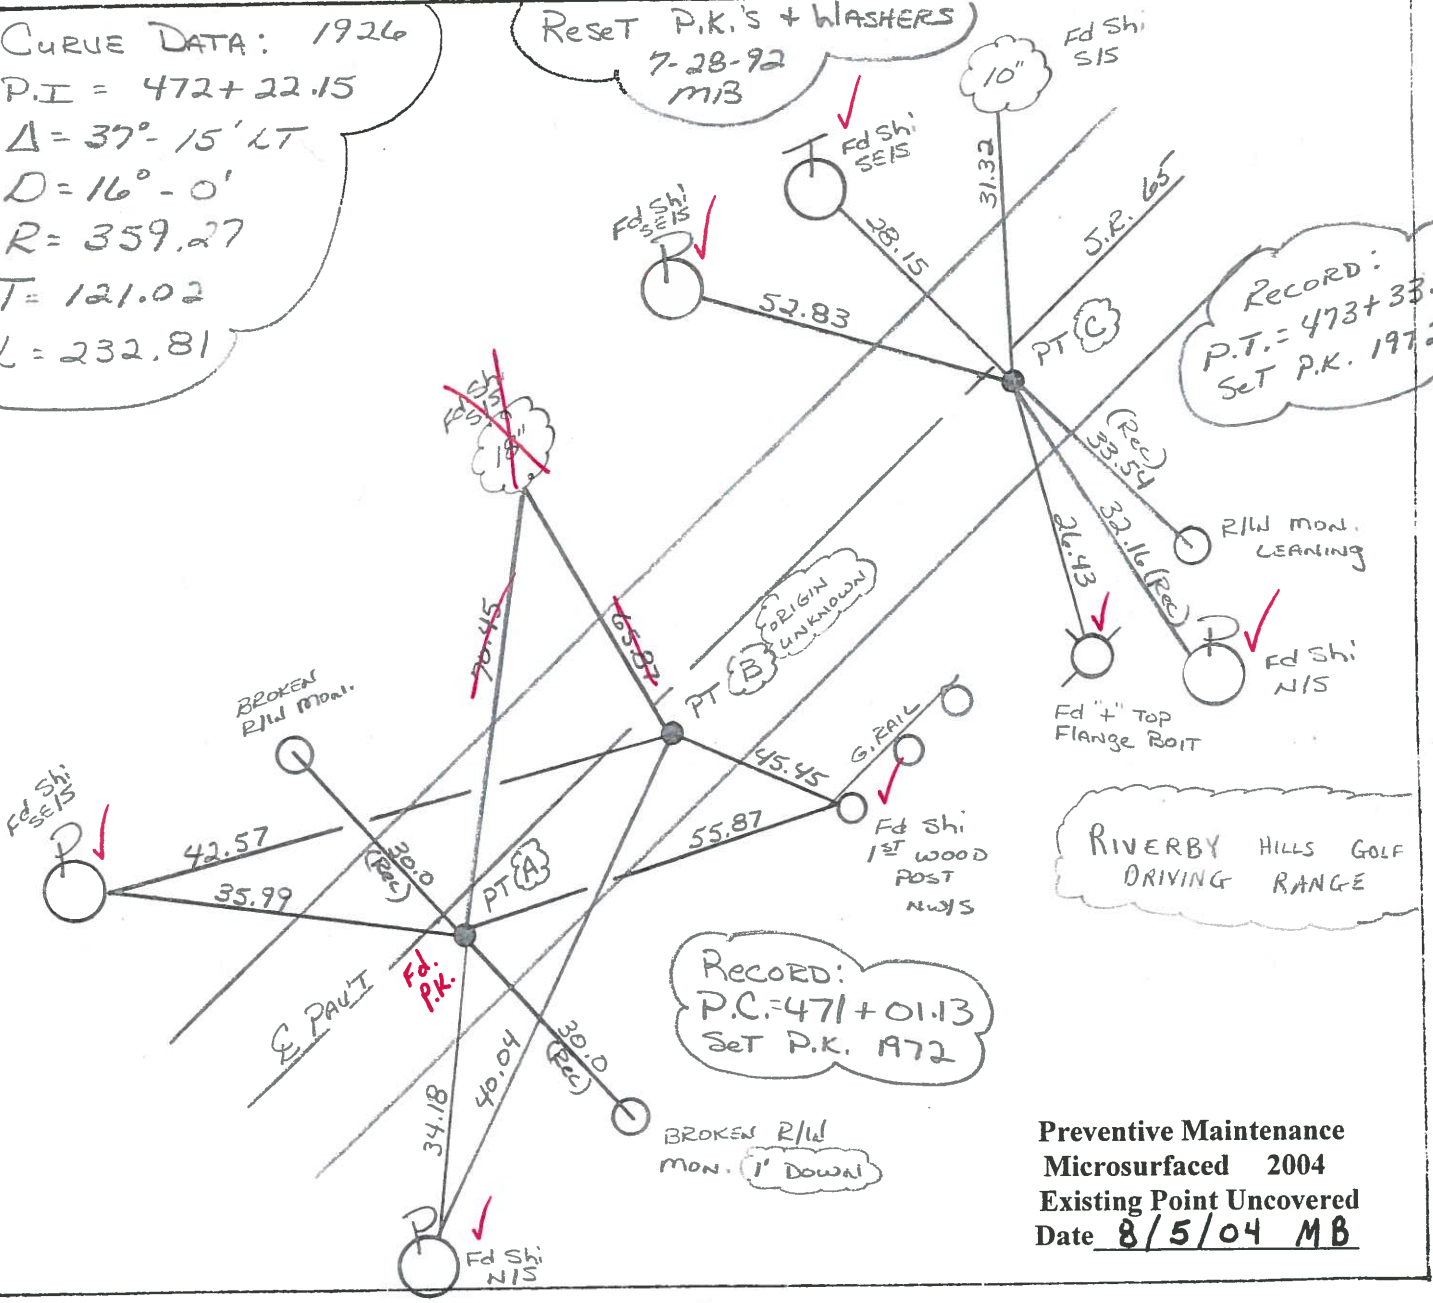 CURVE DATA: 1926
P.I = 472+22.15
Δ = 37°-15' LT
D = 16°-0'
R = 359.27
T = 121.02
L = 232.81
RESET P.K.'S + WASHERS
7-28-92
MB
10"
Fd Shi
S/S
31.32
T
Fd Shi
SE/S
28.15
Fd Shi
SE/S
P
52.83
S.R. 65
PT C
RECORD:
P.T. = 473+33.
SET P.K. 197
(Rec)
33.54
R/W MON.
LEANING
32.16 (Rec)
26.43
P
Fd Shi
N/S
Fd "+" TOP
FLANGE BOLT
Fd Shi
S/S
18"
70.45
65.87
PT B
ORIGIN
UNKNOWN
BROKEN
R/W MON.
G.RAIL
45.45
55.87
Fd Shi
1ST WOOD
POST
NW/S
RIVERBY HILLS GOLF
DRIVING RANGE
Fd Shi
SE/S
P
42.57
35.99
30.0
(Rec)
PT A
Fd.
P.K.
℄ PAV'T
RECORD:
P.C.=471+01.13
SET P.K. 1972
30.0
(Rec)
40.04
34.18
BROKEN R/W
MON. 1' DOWN
P
Fd Shi
N/S
Preventive Maintenance
Microsurfaced 2004
Existing Point Uncovered
Date 8/5/04 MB